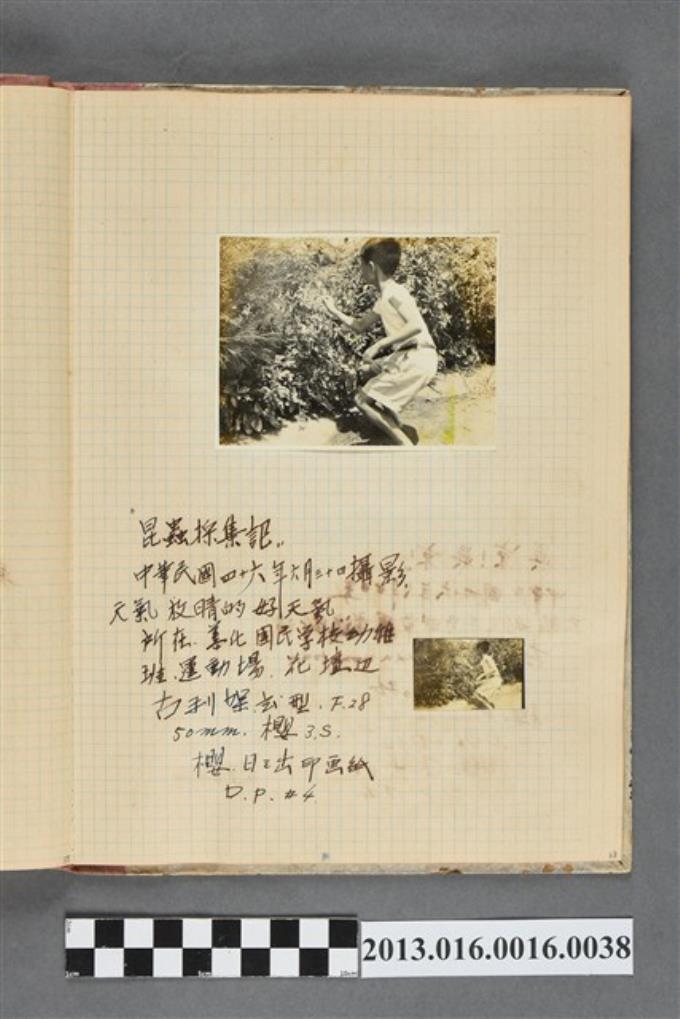 昆蟲採集記
中華民國四十六年六月三十日攝影
天氣 放晴的好天氣
所在 善化國民学校幼稚
班.運動場.花壇边
古利媒式型.F.28
50mm. 櫻 3.S.
櫻.日之出印画紙
D.P. #4
2013.016.0016.0038